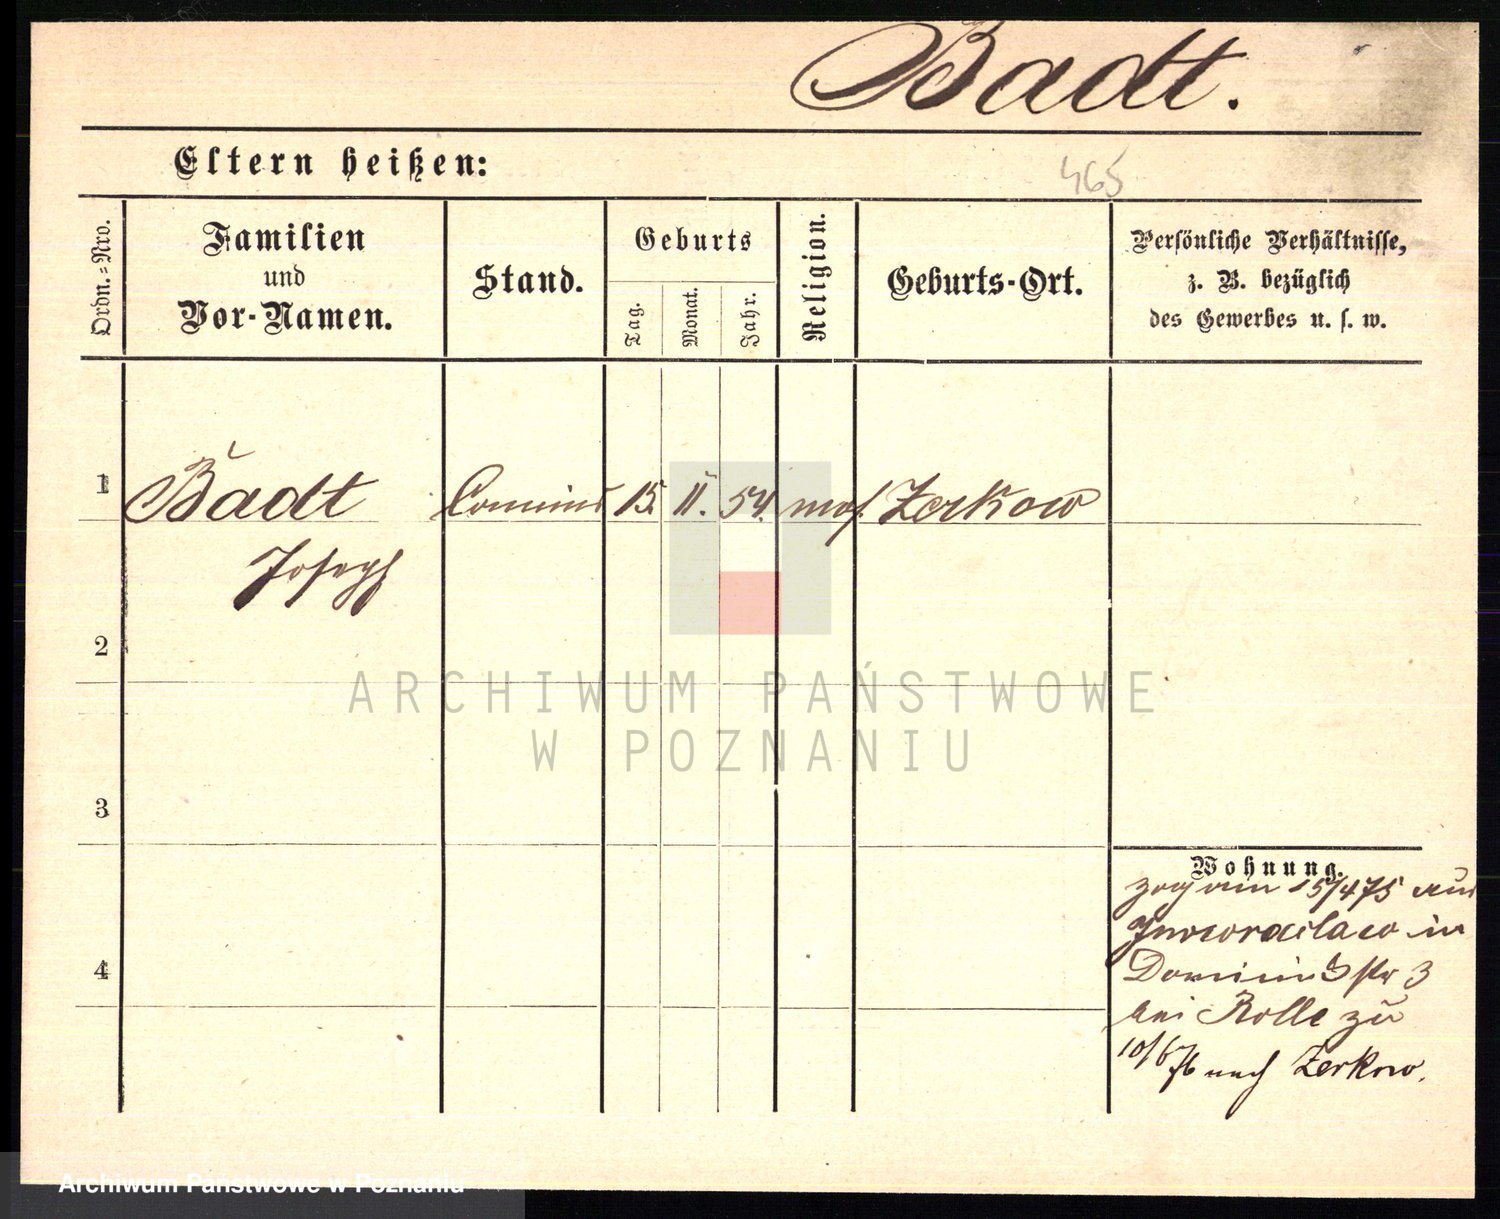 Badt.
Eltern heißen:
465
Ordn.=Nro.
Familien
und
Vor-Namen.
Stand.
Geburts
Tag.
Monat.
Jahr.
Religion.
Geburts-Ort.
Persönliche Verhältnisse,
z. B. bezüglich
des Gewerbes u. s. w.
1
Badt Commis 15. II. 54. mos. Zerkow
Joseph
2
3
4
Wohnung.
zog am 15/4 75 aus
Inowraclaw in
str 3
bei Rolle zu
10/6 76 nach Zerkow.
ARCHIWUM PAŃSTWOWE
W POZNANIU
Archiwum Państwowe w Poznaniu